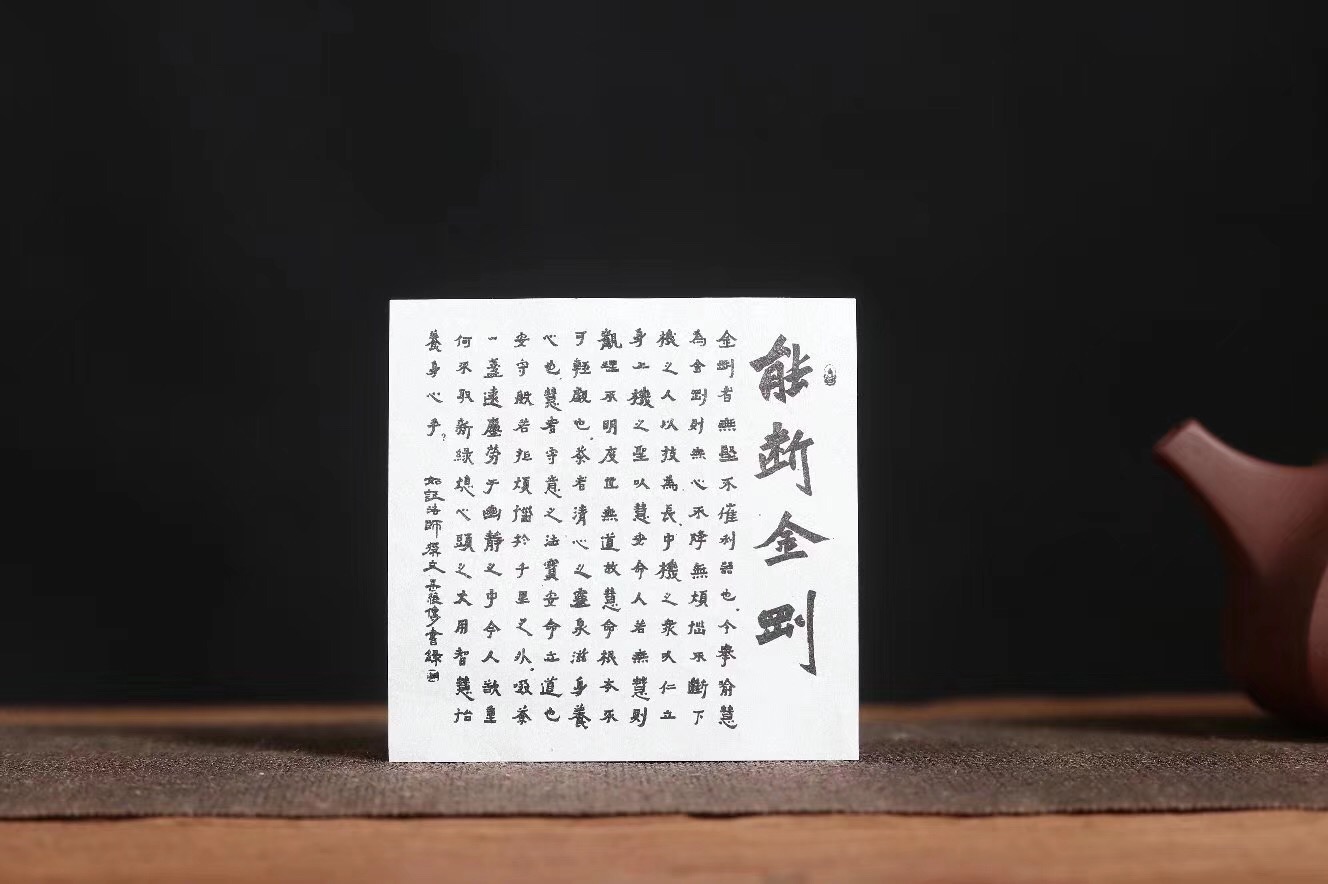 能断金剛
金剛者無堅不催利器也今拳喻慧
為金剛則無心不降無煩惱不斷下
機之人以技為長中機之衆以仁立
身上機之聖以慧安命人若無慧則
觀理不明度世無道故慧命根本不
可輕觀也茶者清心之靈泉滋身養
心也慧者守意之法寶安命立道也
安守般若拒煩惱於千里之外吸茶
一盞遠塵勞于幽靜之中今人欲重
何不取新緑熄心頭之火用智慧怡
養身心乎?
如証法師撰文